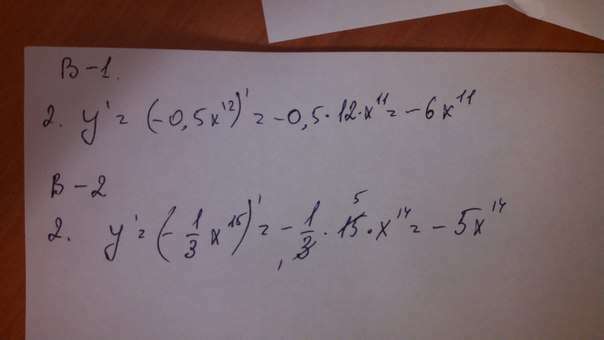 В-1.
2. y' = (-0,5x¹²)' = -0,5·12·x¹¹ = -6x¹¹
В-2
2. y' = (-1/3 x¹⁵)' = -1/3 · 15 · x¹⁴ = -5x¹⁴